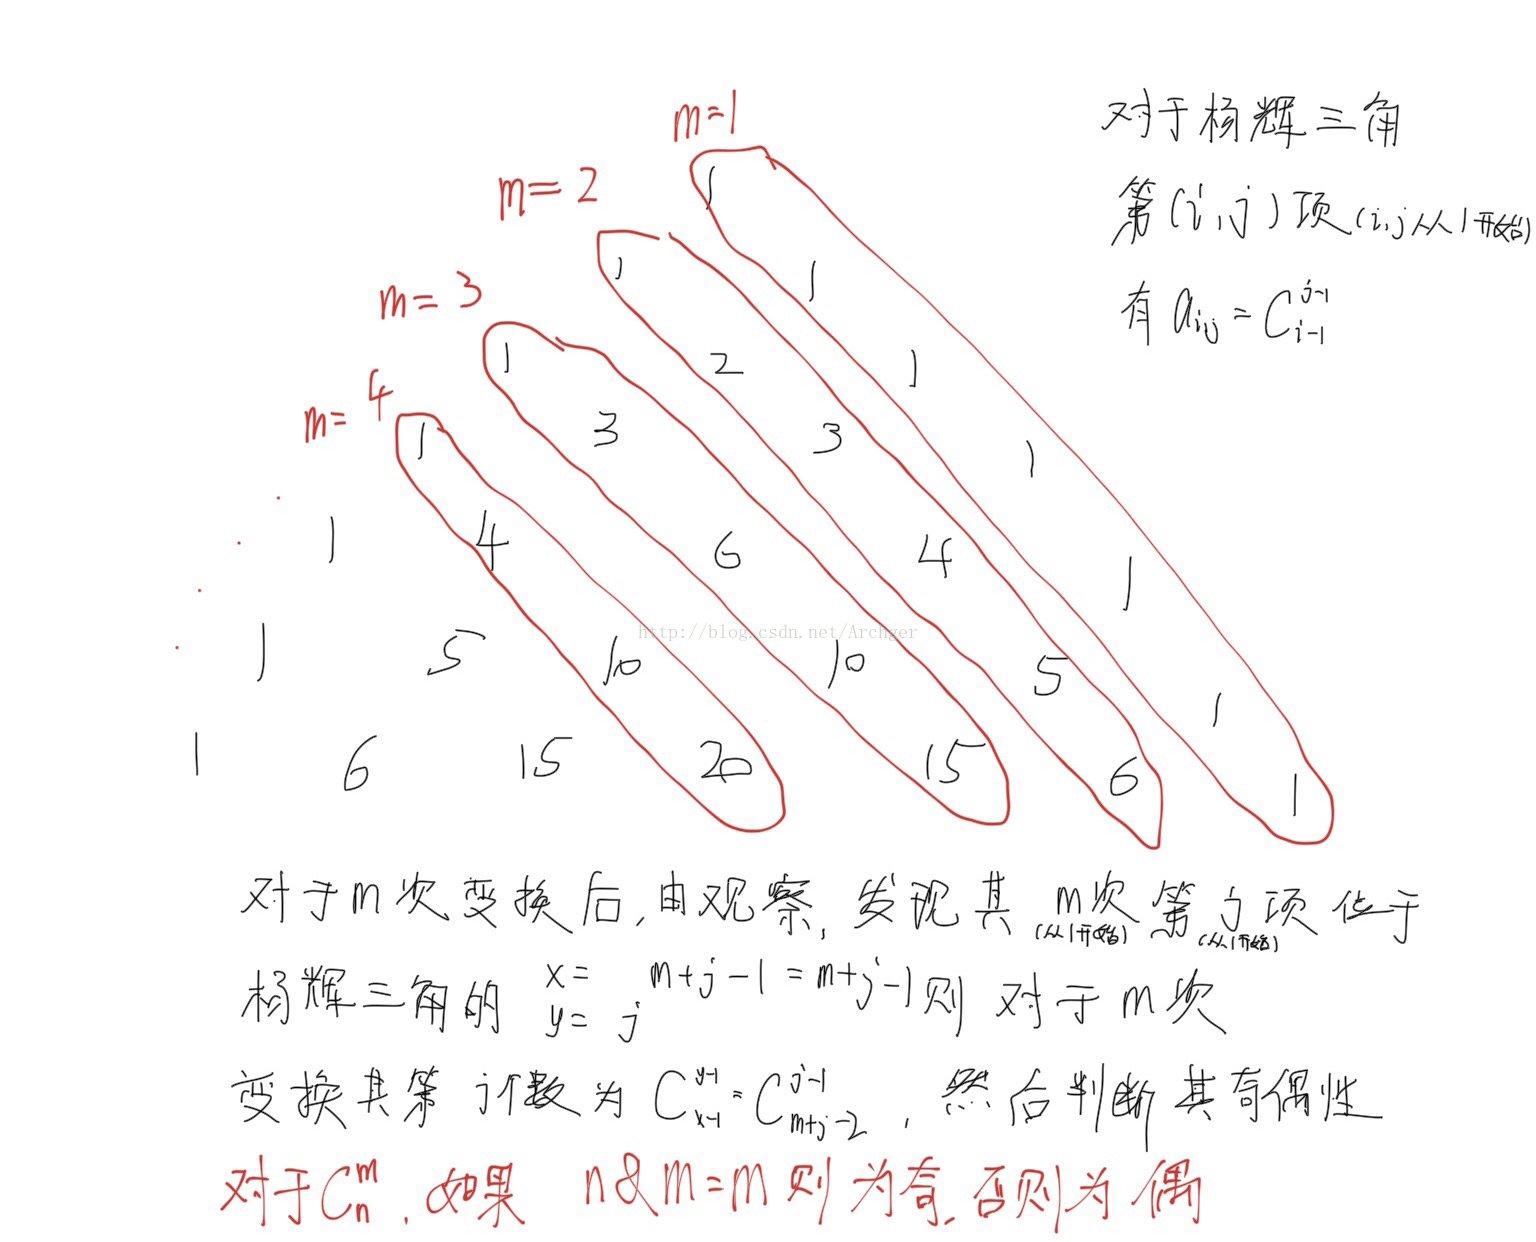 m=1
对于杨辉三角
m=2
1
第(i,j)项(i,j从1开始)
m=3
1 1
有 aij = C_{i-1}^{j-1}
m=4
1 2 1
1 3 3 1
1 4 6 4 1
http://blog.csdn.net/Archger
1 5 10 10 5 1
1 6 15 20 15 6 1
对于m次变换后,由观察,发现其m次第j项位于
(从1开始) (从1开始)
杨辉三角的 x= m+j-1=m+j-1 则对于m次
y= j
变换其第j个数为 C_{x-1}^{y-1}=C_{m+j-2}^{j-1},然后判断其奇偶性
对于C_n^m,如果 n&m=m则为奇,否则为偶